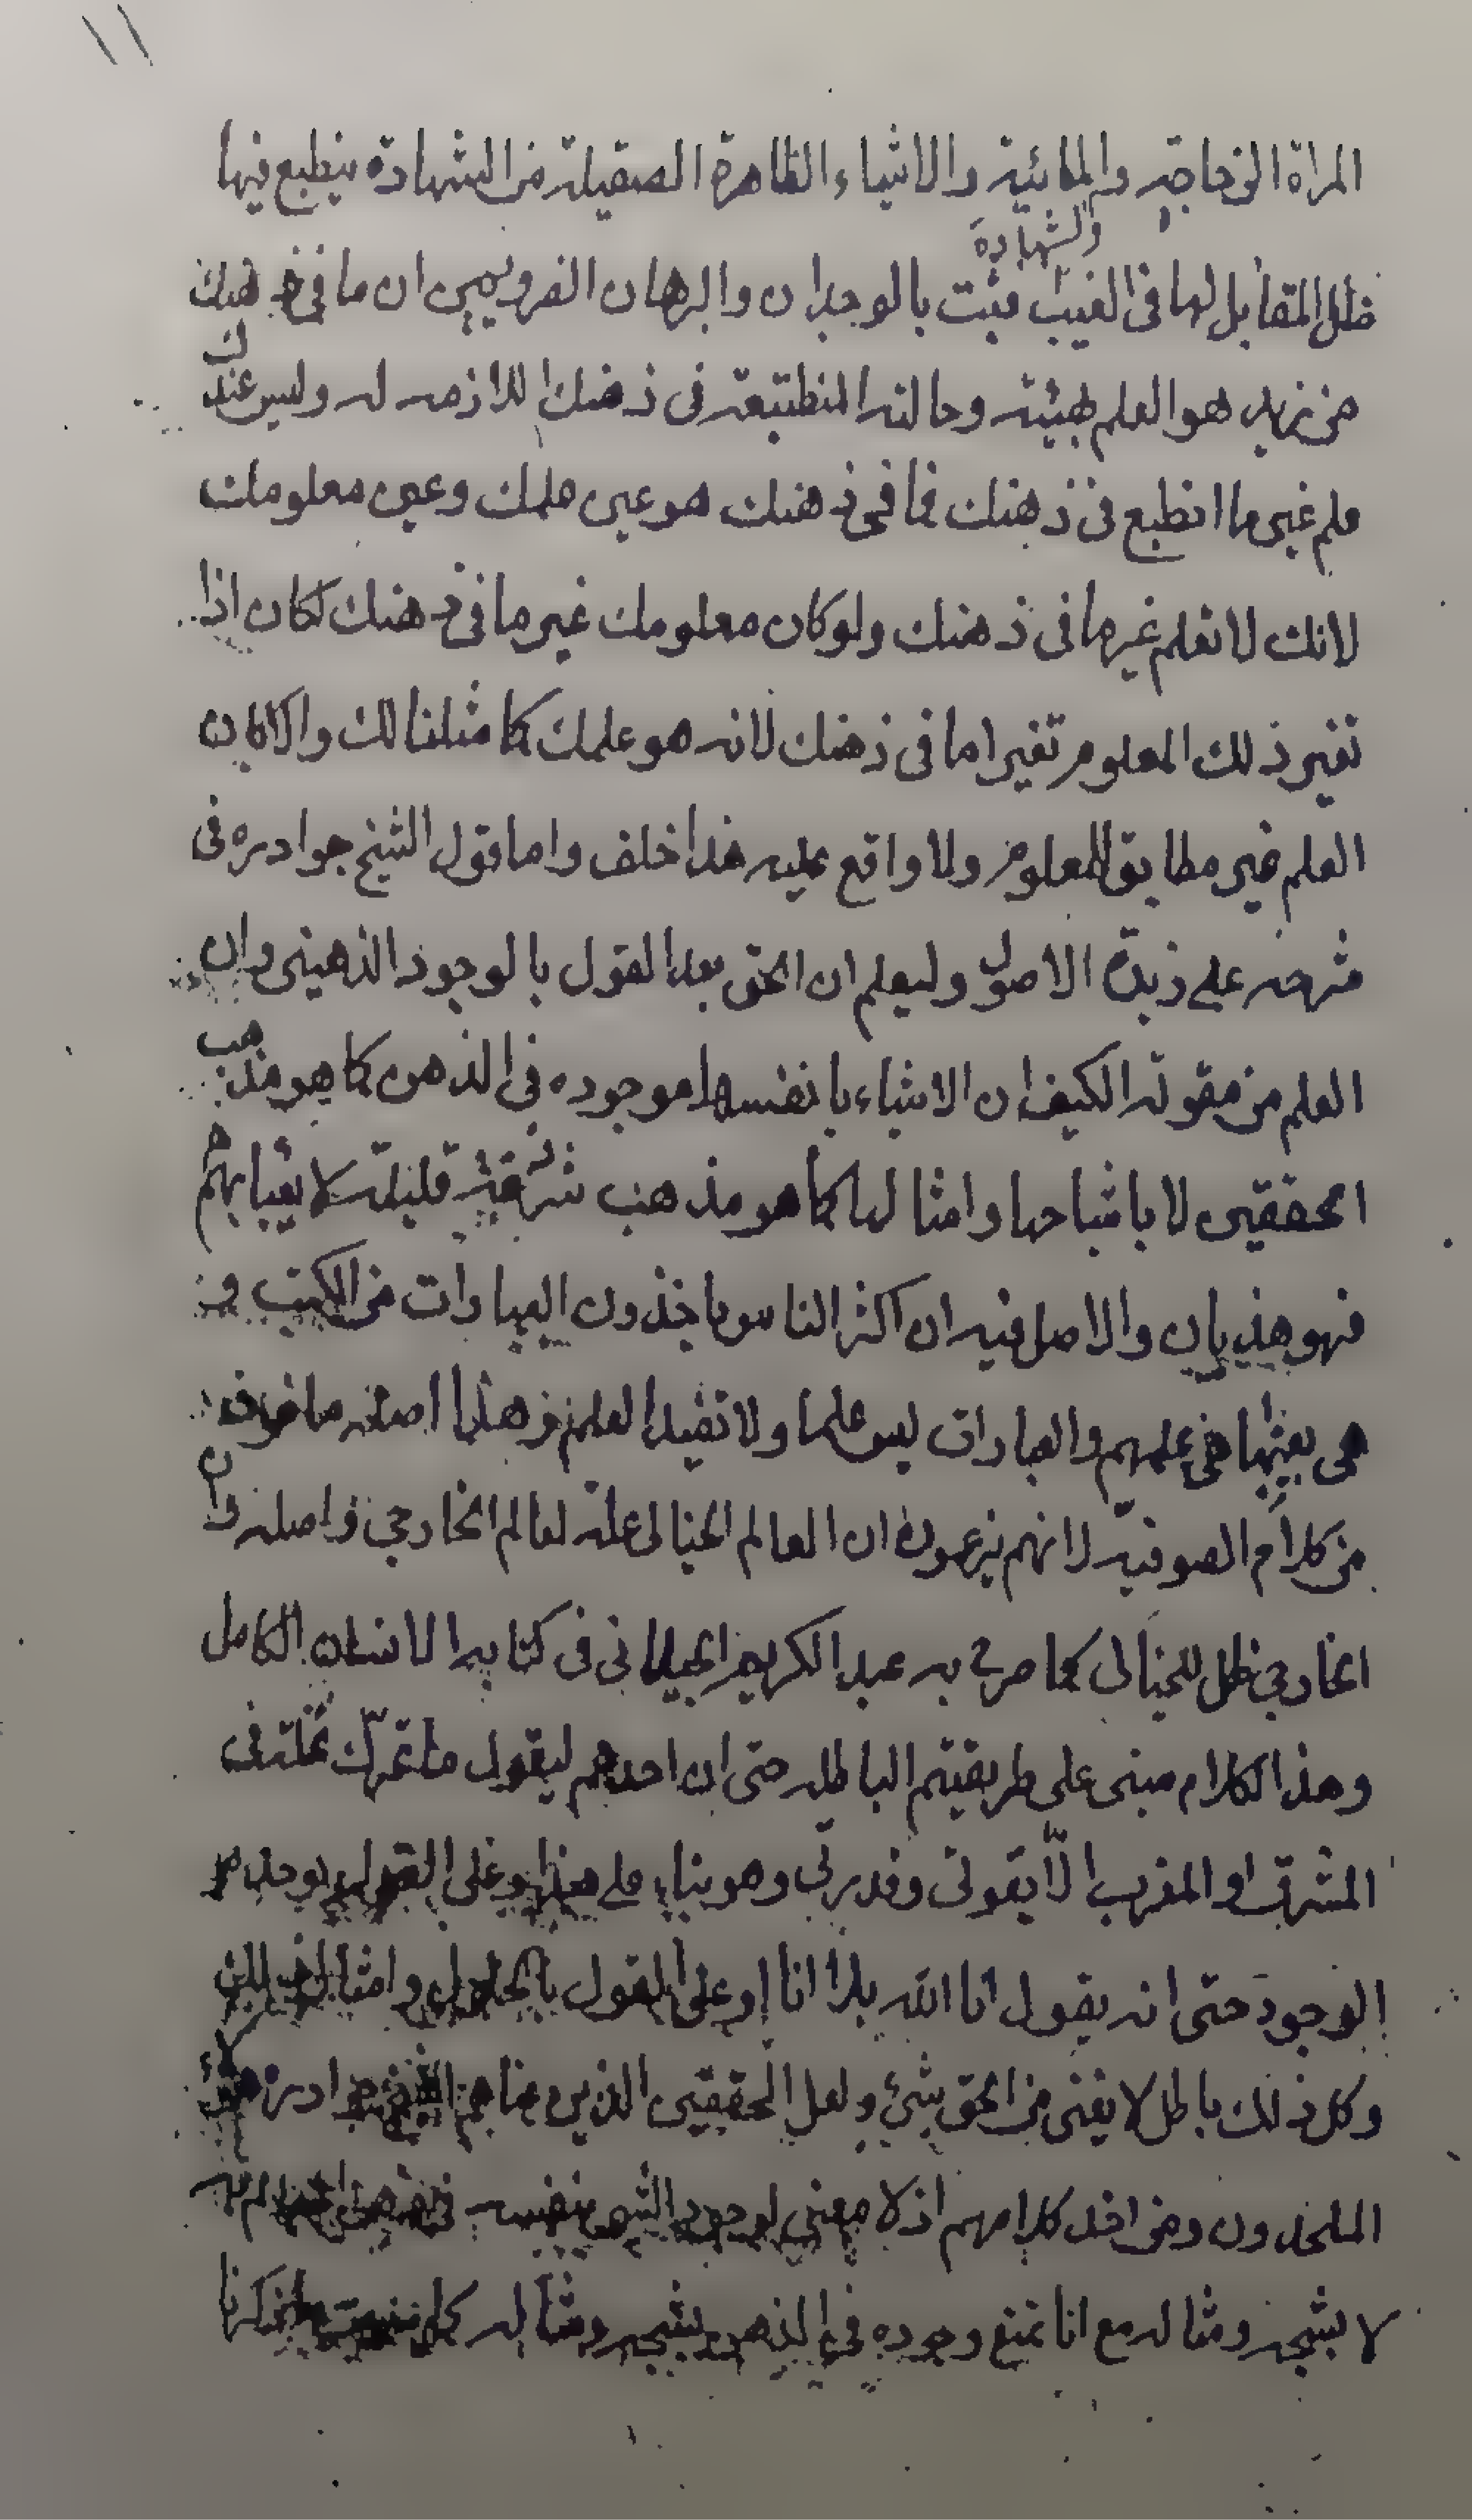 ١١
المراة الزجاجية والمائية والاشياء الظاهرة الصقيلة من الشهادة ينطبع فيها
والشهادة
ظل المقابل لها فى الغيب فثبت بالوجدان والبرهان الضروريين ان ما فى ذهنك
من زيد هو العلم بهيئته وحالته المنطبعة فى ذهنك اللازمه له وليس عندك
علم غير ما انطبع فى ذهنك فما فى ذهنك هو عين علمك وعين معلومك
لانك لا تعلم غير ما فى ذهنك ولو كان معلومك غير ما فى ذهنك لكان اذا
تغير ذلك المعلوم تغير اما فى ذهنك لانه هو علمك كما مثلنا لك والا كان
العلم غير مطابق للمعلوم ولا واقع عليه هذا خلف واما قول الشيخ جواد ره فى
شرحه على زبدة الاصول وليعلم ان الحق بعد القول بالوجود الذهينى وان
العلم من مقولة الكيف ان الاشياء بانفسها موجوده فى الذهن كما هو مذهب
المحققين لا باشباحها وامثالها كما هو مذهب شرذمة قليلة لا يعبا بهم
فهو هذيان والاصل فيه ان اكثر الناس ياخذون العبارات من الكتب
هى بعينها هى علمهم والعبارات ليس علما ولا تفيد العلم هذا اصله ماخوذ
من كلام الصوفية لانهم يزعمون ان العالم الخيالى علة لعالم الخارجى واصله وان
الخارجى ظل للخيالى كما صرح به عبد الكريم الجيلانى فى كتابه الانسان الكامل
وهذا الكلام مبنى على طريقتهم الباطله حتى ان احدهم ليقول ما تحرك نملة فى
المشرق او المغرب الا بقوتى وقدرتى وهو بناء على هذا وعلى القول بوحدة
الوجود حتى انه يقول انا الله بلا انا او على القول بالحلول وامثال ذلك
وكل ذلك باطل لا يغنى من الحق شيئ ولعل المحققين الذين عناهم الشيخ جواد ره هؤلاء
الملحدون ومن اخذ كلامهم اذ لا معنى لوجود الشئ بنفسه فى
لا بشبحه ومثاله مع انا نمنع وجوده فى الذهن بشبحه ومثاله كما ذكرنا